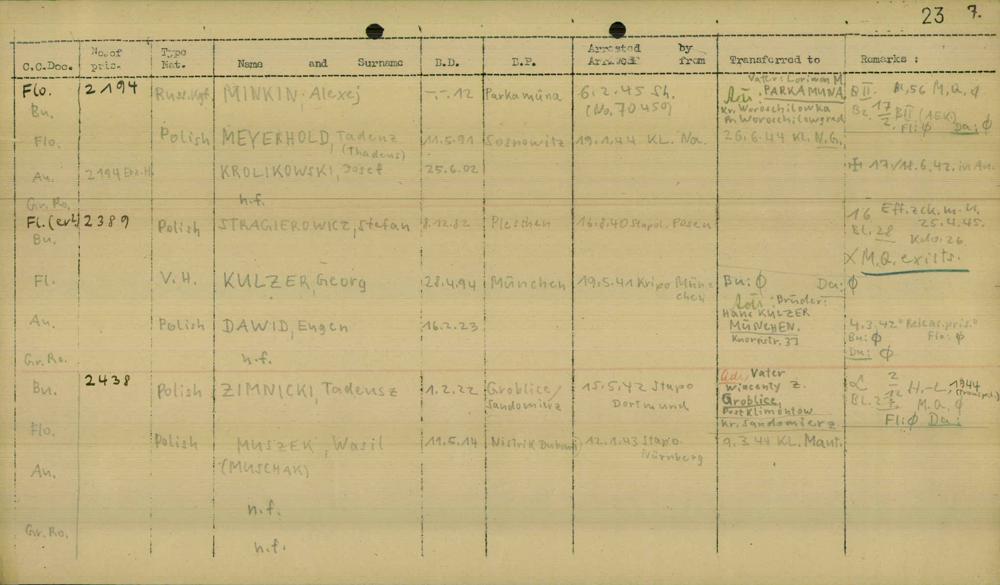 23 7.
C.C.Doc. No. of pris. Type Nat. Name and Surname B.D. B.P. Arrested by Arrived from Transferred to Remarks :
Flo. 2194 Russ.Kgf. MINKIN, Alexej -.-.12 Parkamüna 6.2.45 Sh. (No. 70450)
PARKAMÜNA,
Kr. Woroschilowka
Woroschilowgrad
M.Q. ∅
Fli ∅ Da: ∅
Bu.
Flo. Polish MEYERHOLD, Tadenz (Thadeus) 11.5.91 Sosnowitz 19.1.44 KL. Na. 26.6.44 KL. N.G.
Au. 2194 KROLIKOWSKI, Josef 25.6.02 17/18.6.42. in Au.
Gr.Ro. n.f.
Fl. 2389 Polish STRAGIEROWICZ, Stefan 8.12.82 Pleschen 16.8.40 Stapol. Posen
16 Eff.zck. m.U.
25.4.45.
Bl. 28 Kdo. 26
X M.Q. exists.
Bu.
Fl. V.H. KULZER, Georg 28.4.94 München 19.5.41 Kripo München Bu: ∅ Da: ∅
Brüder:
Hans KULZER
MÜNCHEN,
Au. Polish DAWID, Eugen 16.2.23
4.3.42 "Releas.pris."
Bu: ∅ Flo: ∅
Da: ∅
Gr.Ro. n.f.
Bu. 2438 Polish ZIMNICKI, Tadeusz 1.2.22 Groblice/Sandomierz 15.5.42 Stapo Dortmund
Vater
Wincenty Z.
Groblice,
Post Klimontow
Kr. Sandomierz
H.-L. 1944
M.Q. ∅
Fli ∅ Da:
Flo. Polish MUSZEK, Wasil 11.5.14 12.1.43 Stapo Nürnberg 9.3.44 KL. Maut.
Au. (MUSCHAK)
n.f.
Gr.Ro.
n.f.